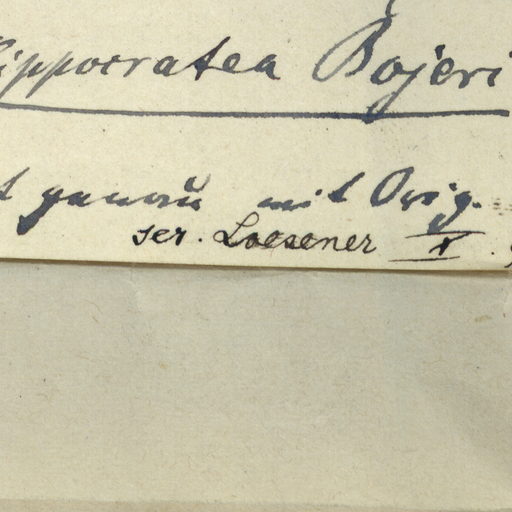 ippocratea Bojeri
t genau mit Orig.
ser. Loesener X.